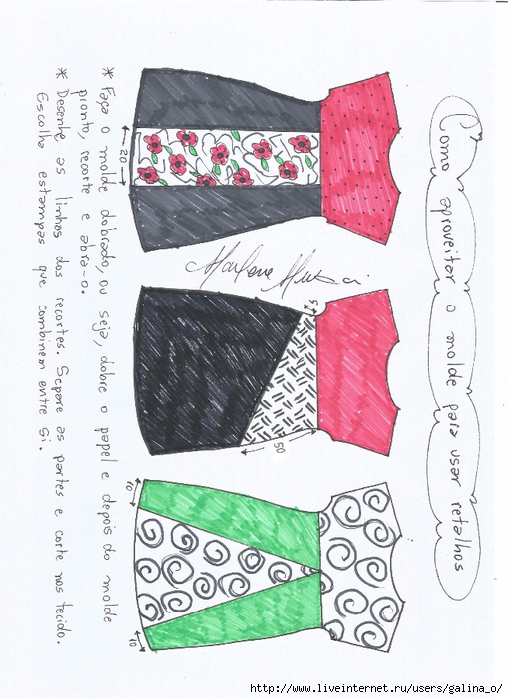 Como aproveitar o molde para usar retalhos
20
5
50
10
10
Marlene Mukai
* Faça o molde dobrado, ou seja, dobre o papel e depois do molde
pronto, recorte e abra-o.
* Desenhe as linhas dos recortes. Separe as partes e corte nos tecido.
Escolha estampas que combinem entre si.
http://www.liveinternet.ru/users/galina_o/